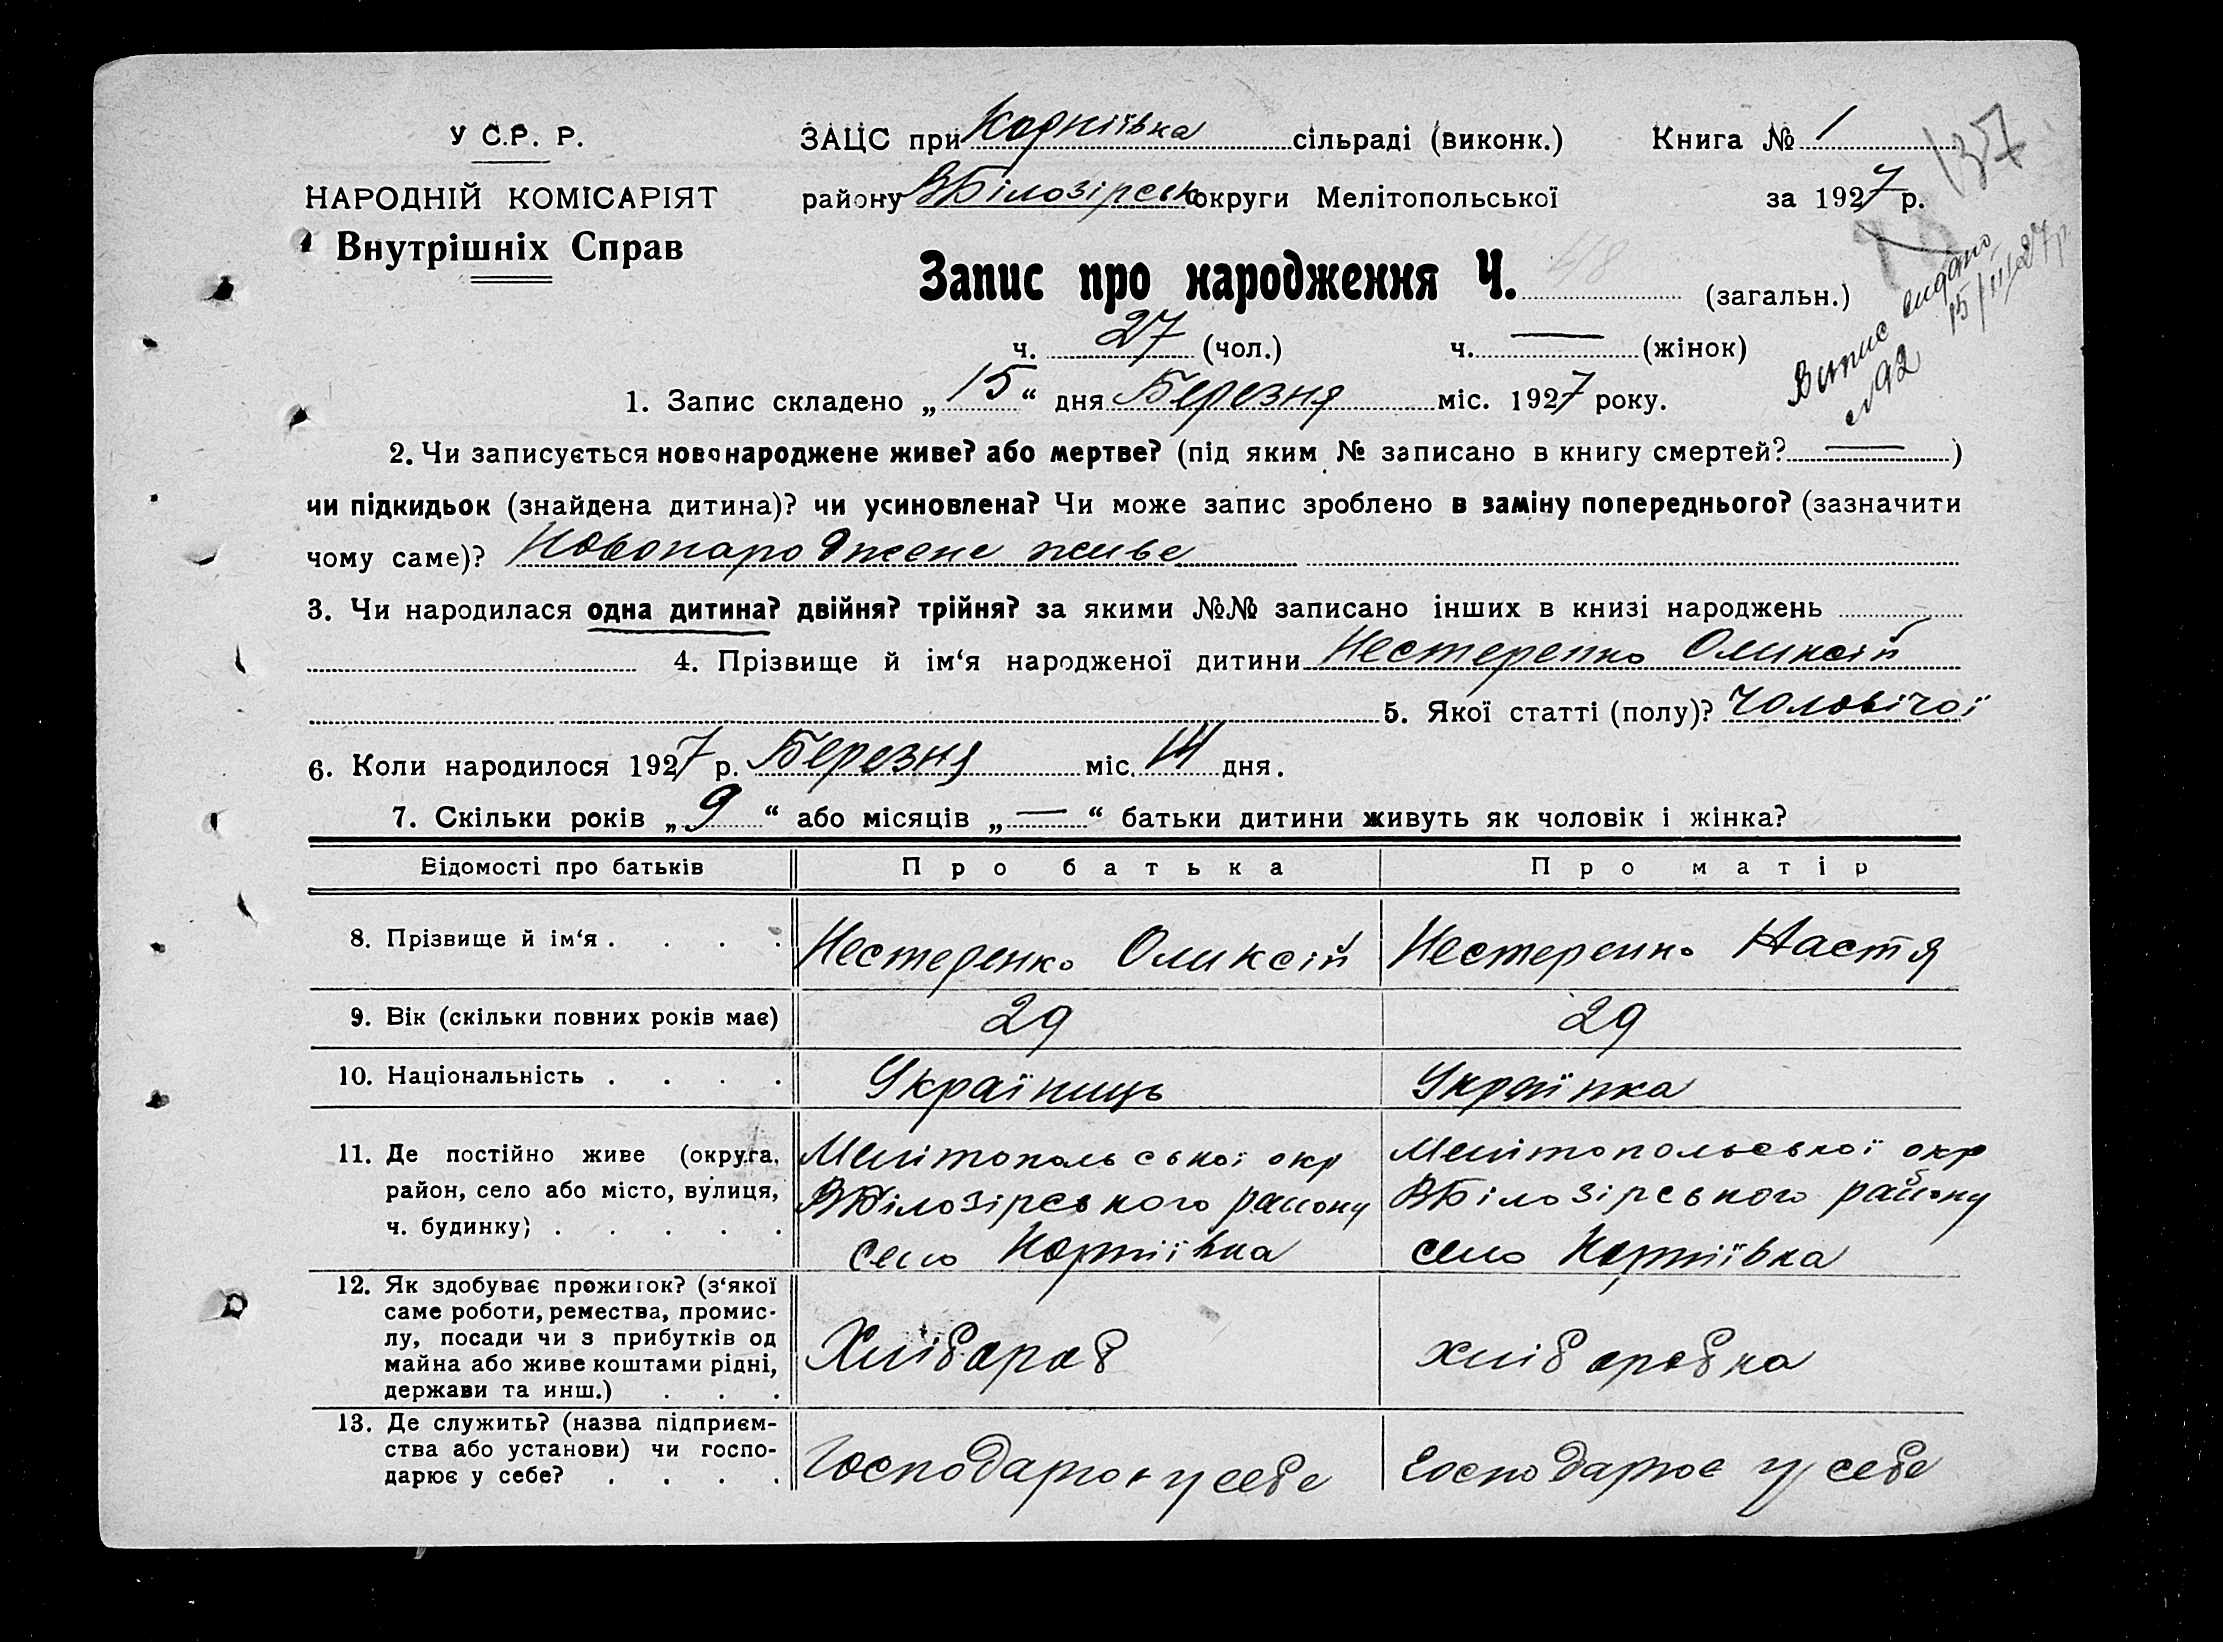 У С.Р. Р.
НАРОДНІЙ КОМІСАРІЯТ
Внутрішніх Справ
ЗАЦС при сільраді (виконк.)
району ВБілозірськ округи Мелітопольської
Книга № 1
за 1927 р.
137
Запис про народження Ч. 48 (загальн.)
ч. 27 (чол.) ч. — (жінок)
Випис видано
№92 15/III 27р
1. Запис складено „15“ дня Березня міс. 1927 року.
2. Чи записується новонароджене живе? або мертве? (під яким № записано в книгу смертей? — )
чи підкидьок (знайдена дитина)? чи усиновлена? Чи може запис зроблено в заміну попереднього? (зазначити
чому саме)? Новонароджене живе
3. Чи народилася одна дитина? двійня? трійня? за якими №№ записано інших в книзі народжень
4. Прізвище й ім‘я народженої дитини Нестеренко Оликсій
5. Якої статті (полу)? Чоловічої
6. Коли народилося 1927 р. Березня міс. 14 дня.
7. Скільки років „9“ або місяців „—“ батьки дитини живуть як чоловік і жінка?
Відомості про батьків Про батька Про матір
8. Прізвище й ім‘я . . . . Нестеренко Оликсій Нестеренко Настя
9. Вік (скільки повних років має) 29 29
10. Національність . . . . Україниць Українка
11. Де постійно живе (округа, Мелітопольської окр Мелітопольської окр
район, село або місто, вулиця, ВБілозірського району ВБілозірського району
ч. будинку) . . . . . село село
12. Як здобуває прожиток? (з‘якої
саме роботи, ремества, промис-
лу, посади чи з прибутків од
майна або живе коштами рідні,
держави та инш.) . . .
Хлібароб хліборобка
13. Де служить? (назва підприєм-
ства або установи) чи госпо-
дарює у себе? . . . .
Господарює у себе Господарює у себе